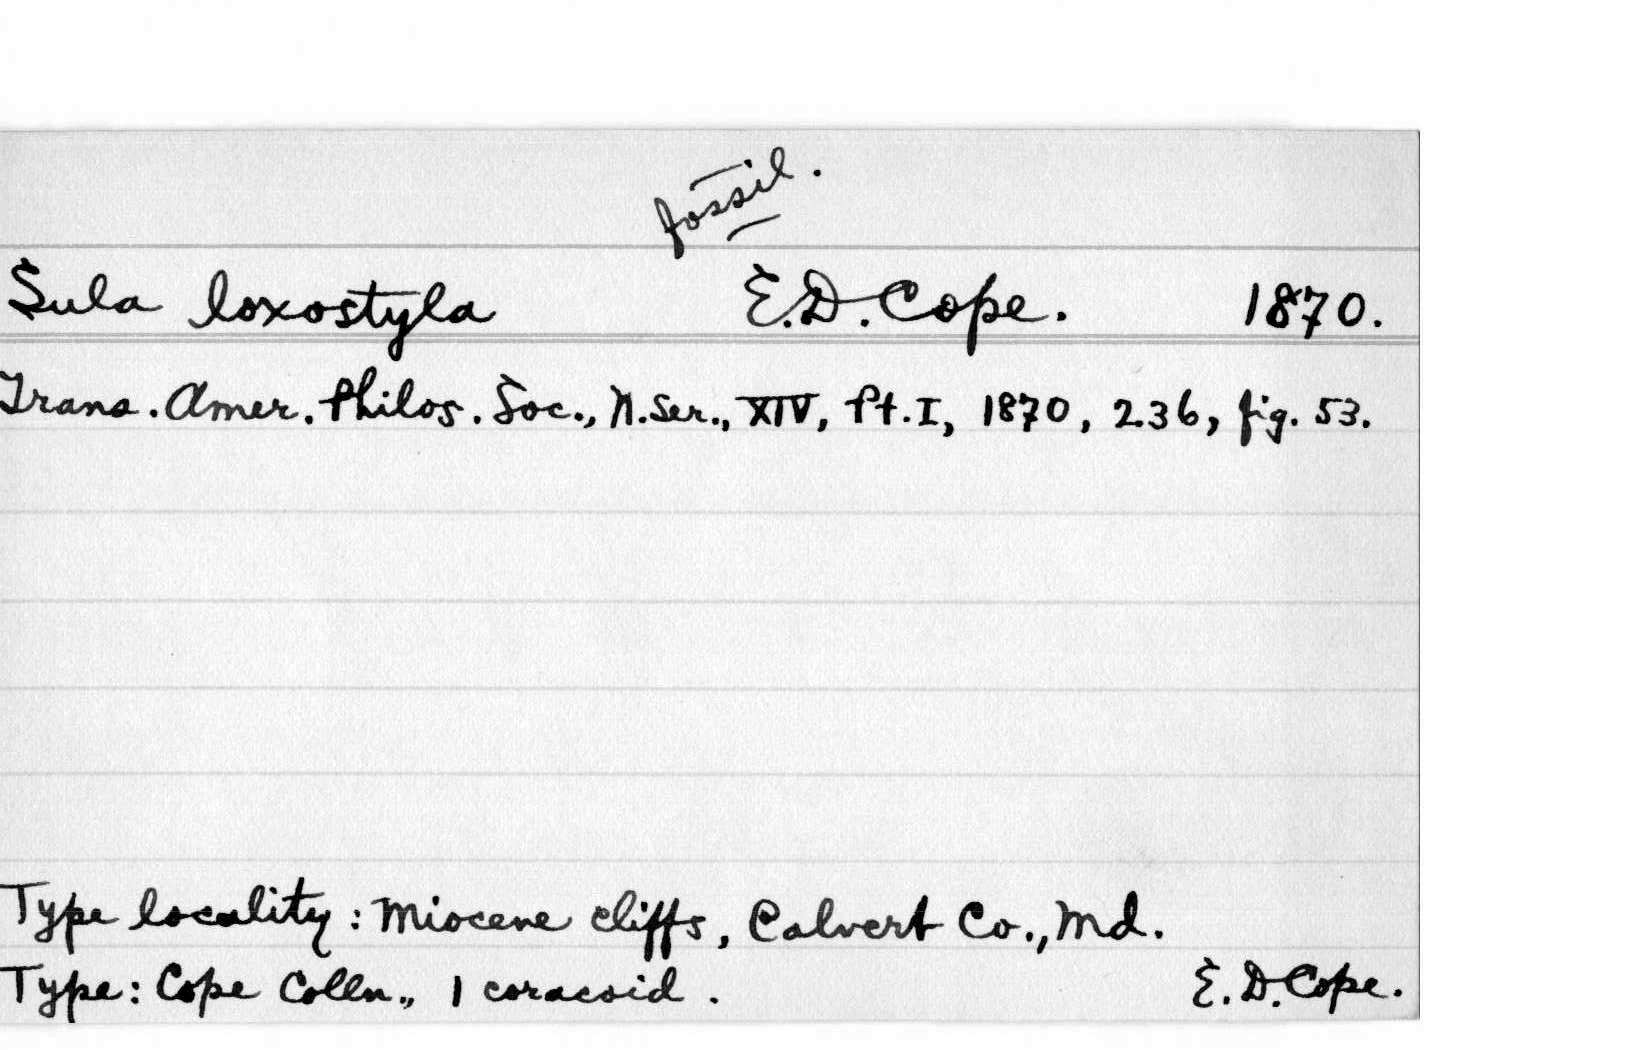 fossil.
Sula loxostyla E.D. Cope. 1870.
Trans. Amer. Philos. Soc., N.Ser., XIV, Pt.I, 1870, 236, fig. 53.
Type locality: Miocene cliffs, Calvert Co., Md.
Type: Cope Colln., 1 coracoid. E.D. Cope.